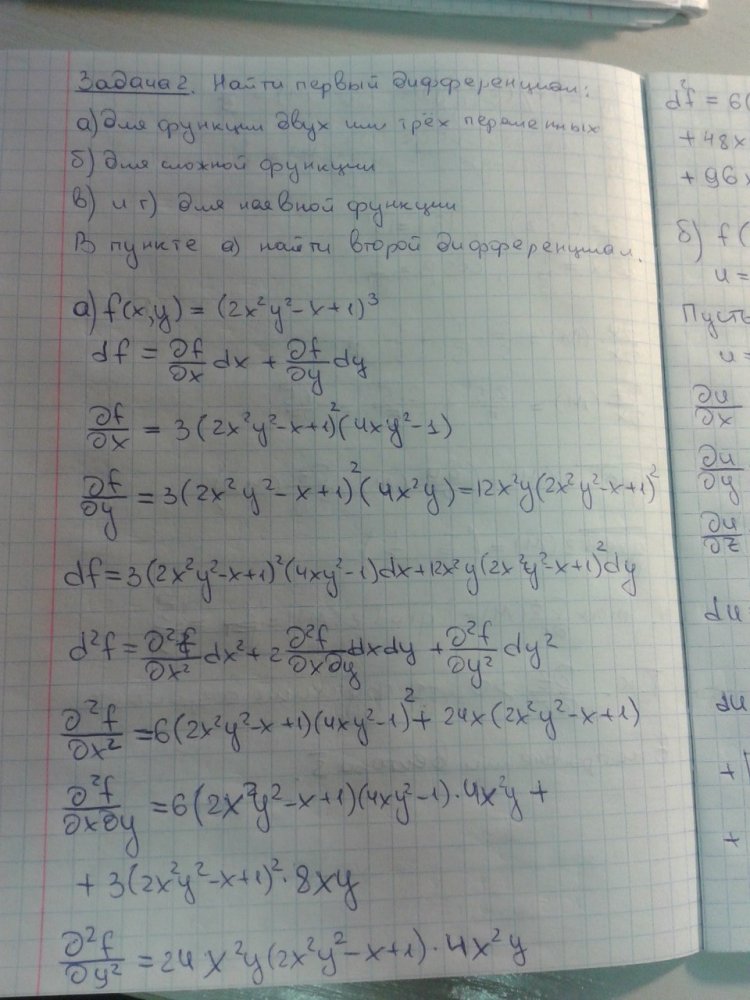 Задача 2. Найти первый дифференциал:
а) для функции двух или трёх переменных
б) для сложной функции
в) и г) для неявной функции
В пункте а) найти второй дифференциал.
а) f(x,y) = (2x²y²-x+1)³
df = ∂f/∂x dx + ∂f/∂y dy
∂f/∂x = 3(2x²y²-x+1)²(4xy²-1)
∂f/∂y = 3(2x²y²-x+1)²(4x²y) = 12x²y(2x²y²-x+1)²
df = 3(2x²y²-x+1)²(4xy²-1)dx+12x²y(2x²y²-x+1)²dy
d²f = ∂²f/∂x² dx² + 2 ∂²f/∂x∂y dxdy + ∂²f/∂y² dy²
∂²f/∂x² = 6(2x²y²-x+1)(4xy²-1)² + 24x(2x²y²-x+1)
∂²f/∂x∂y = 6(2x²y²-x+1)(4xy²-1)·4x²y +
+ 3(2x²y²-x+1)²·8xy
∂²f/∂y² = 24x²y(2x²y²-x+1)·4x²y
d²f = 6(
+ 48x
+ 96x
б) f(
u =
Пусть
u =
∂u/∂x
∂u/∂y
∂u/∂z
du
du
+
+